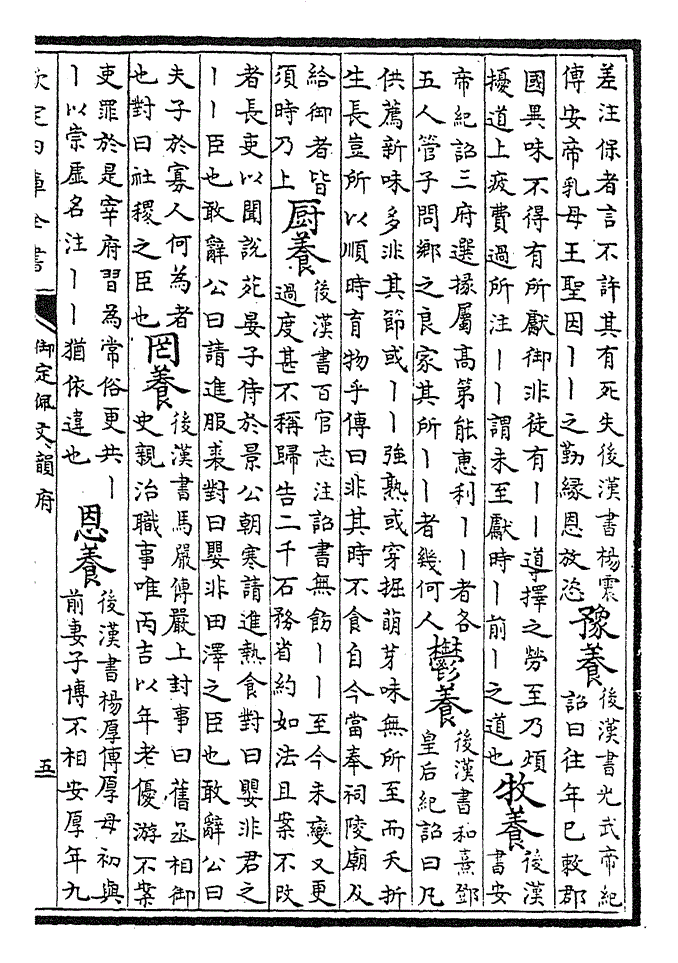 差注保者言不許其有死失後漢書楊震
傳安帝乳母王聖因丨丨之勤緣恩放恣
豫養
後漢書光武帝紀
詔曰往年已敕郡
國異味不得有所獻御非徒有丨丨導擇之勞至乃煩
擾道上疲費過所注丨丨謂未至獻時丨前丨之道也
牧養
後漢
書安
帝紀詔三府選掾屬高第能惠利丨丨者各
五人管子問鄉之良家其所丨丨者幾何人
鬱養
後漢書和熹鄧
皇后紀詔曰凡
供薦新味多非其節或丨丨強熟或穿掘萌芽味無所至而夭折
生長豈所以順時育物乎傳曰非其時不食自今當奉祠陵廟及
給御者皆
須時乃上
厨養
後漢書百官志注詔書無飭丨丨至今未變又更
過度甚不稱歸告二千石務省約如法且案不改
者長吏以聞說苑晏子侍於景公朝寒請進熱食對曰嬰非君之
丨丨臣也敢辭公曰請進服裘對曰嬰非田澤之臣也敢辭公曰
夫子於寡人何為者
也對曰社稷之臣也
罔養
後漢書馬嚴傳嚴上封事曰舊丞相御
史親治職事唯丙吉以年老優游不案
吏罪於是宰府習為常俗更共丨
丨以崇虛名注丨丨猶依違也
恩養
後漢書楊厚傳厚母初與
前妻子博不相安厚年九
欽定四庫全書
御定佩文韻府
五